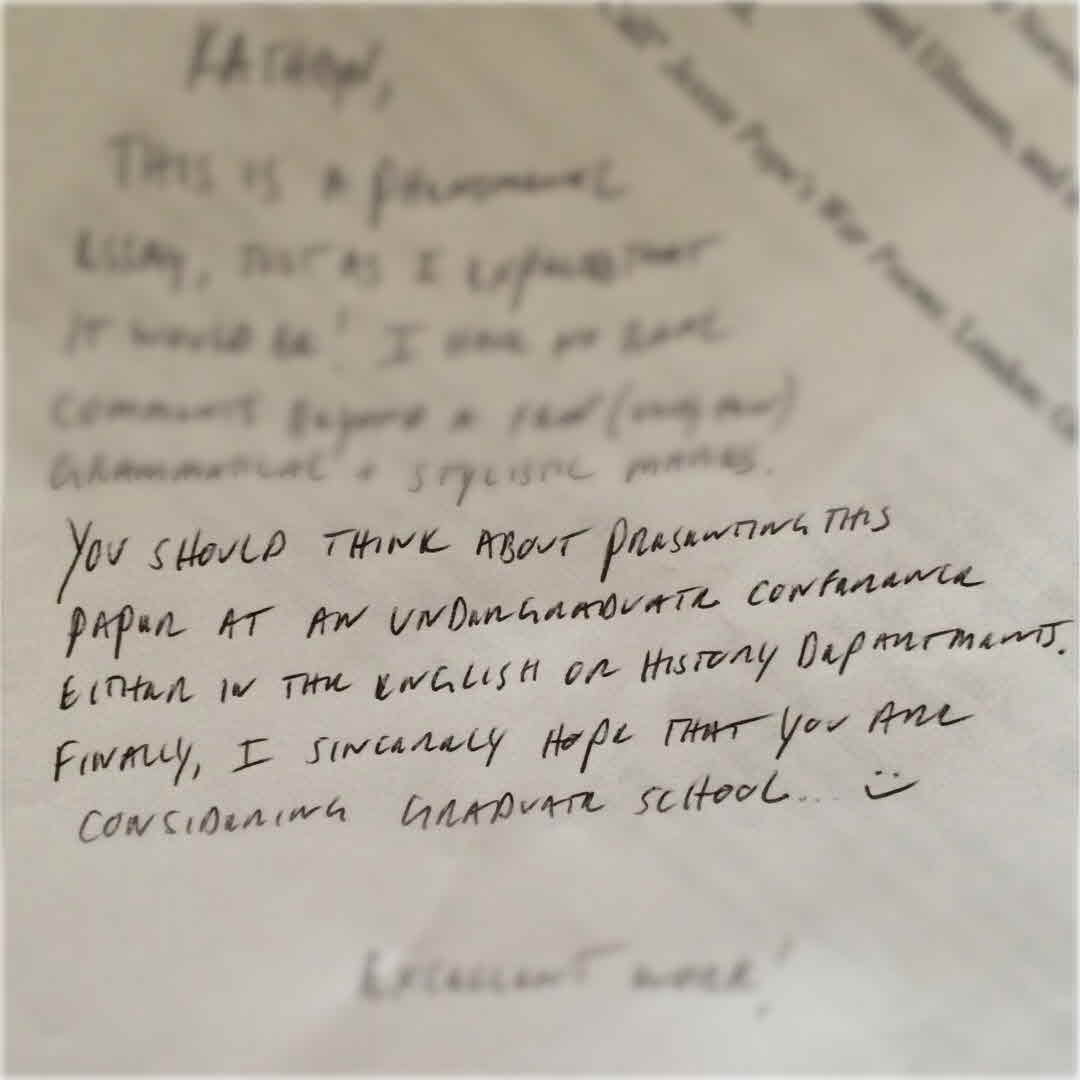 THIS IS A PHENOMENAL
ESSAY, JUST AS I EXPECTED THAT
IT WOULD BE! I HAVE NO REAL
COMMENTS BEYOND A FEW (VERY FEW)
GRAMMATICAL + STYLISTIC MARKS.
YOU SHOULD THINK ABOUT PRESENTING THIS
PAPER AT AN UNDERGRADUATE CONFERENCE
EITHER IN THE ENGLISH OR HISTORY DEPARTMENTS.
FINALLY, I SINCERELY HOPE THAT YOU ARE
CONSIDERING GRADUATE SCHOOL... :)
EXCELLENT WORK!
Call" Jessie Pope's War Poems. London:
Ellmann, and